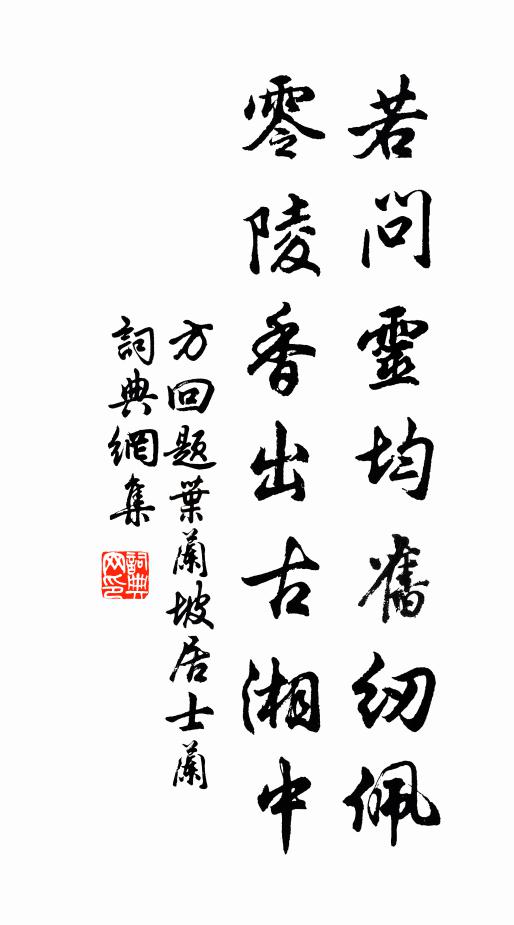 若問靈均舊紉佩
零陵香出古湘中
方回題葉蘭坡居士蘭
詞典網集
詞典網印